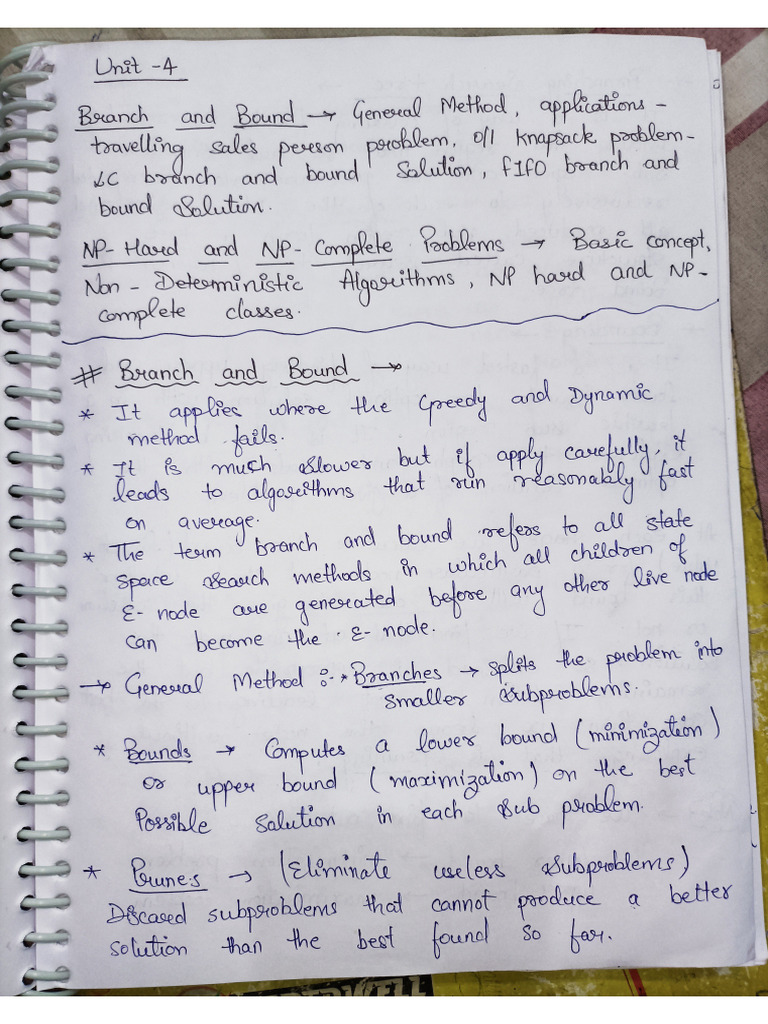 Unit -4
Branch and Bound → General Method, applications -
travelling sales person problem, 0/1 knapsack problem -
LC branch and bound solution, FIFO branch and
bound solution.
NP-Hard and NP-Complete Problems → Basic concept,
Non-Deterministic Algorithms, NP hard and NP-
complete classes.
# Branch and Bound →
* It applies where the Greedy and Dynamic
method fails.
* It is much slower but if apply carefully, it
leads to algorithms that run reasonably fast
on average.
* The term branch and bound refers to all state
space search methods in which all children of
E-node are generated before any other live node
can become the E-node.
→ General Method :- * Branches → splits the problem into
smaller subproblems.
* Bounds → Computes a lower bound (minimization)
or upper bound (maximization) on the best
Possible solution in each sub problem.
* Prunes → (Eliminate useless subproblems)
Discard subproblems that cannot produce a better
solution than the best found so far.